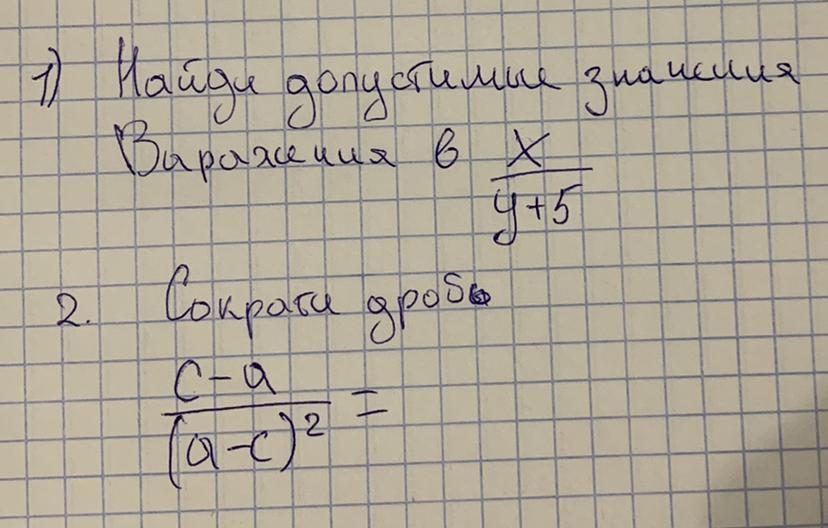 1) Найди допустимые значения
Выражения в x/(y+5)
2. Сократи дробь
(c-a)/(a-c)² =